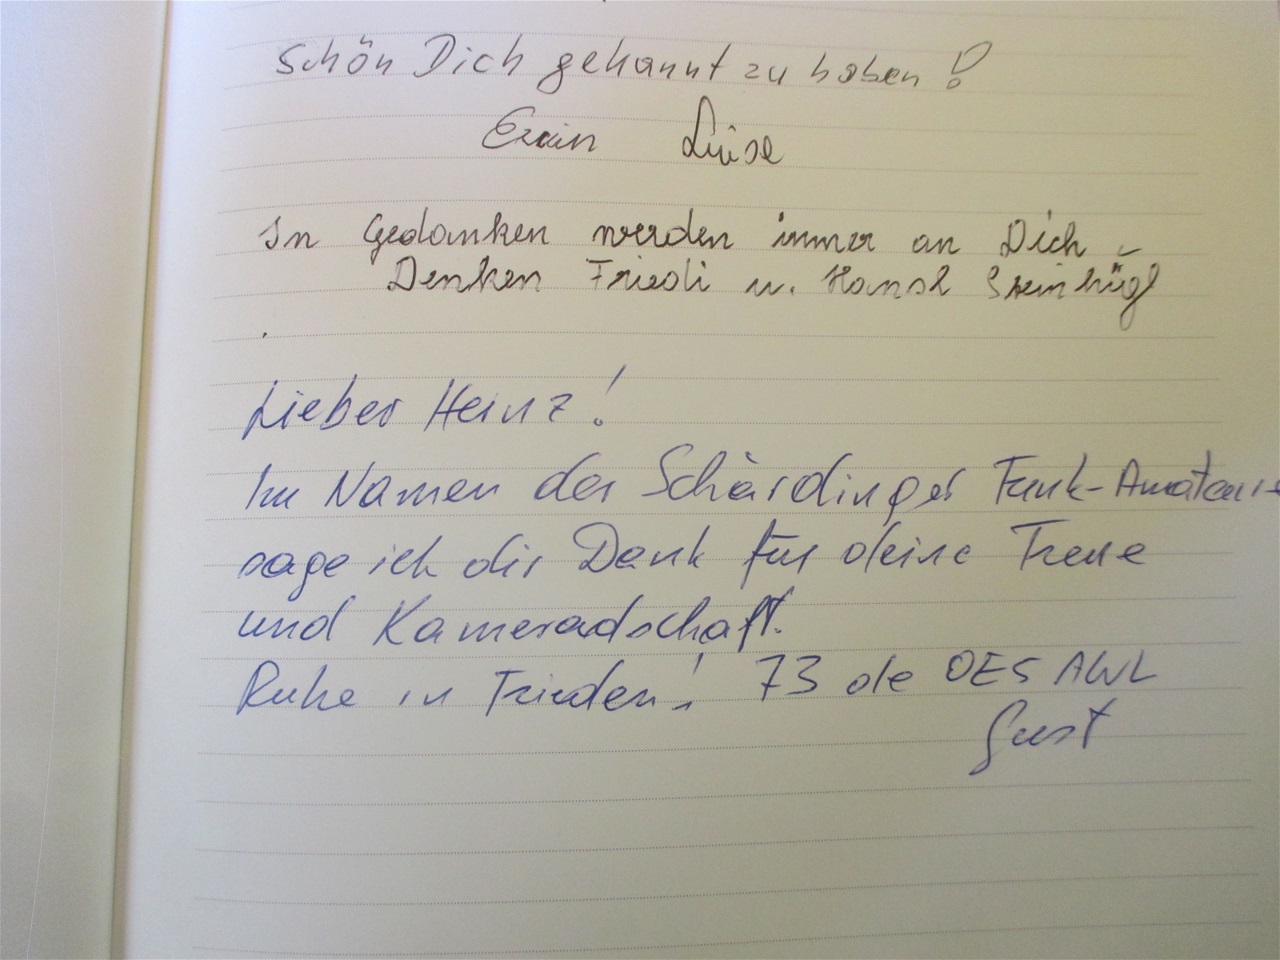 Schön Dich gekannt zu haben!
Erwin Luise
In Gedanken werden immer an Dich
Denken Friedi u. Hansl Steinhügl
Lieber Heinz!
Im Namen der Schärdinger Funk-Amateure
sage ich dir Dank für deine Treue
und Kameradschaft.
Ruhe in Frieden! 73 de OE5AWL
Gust